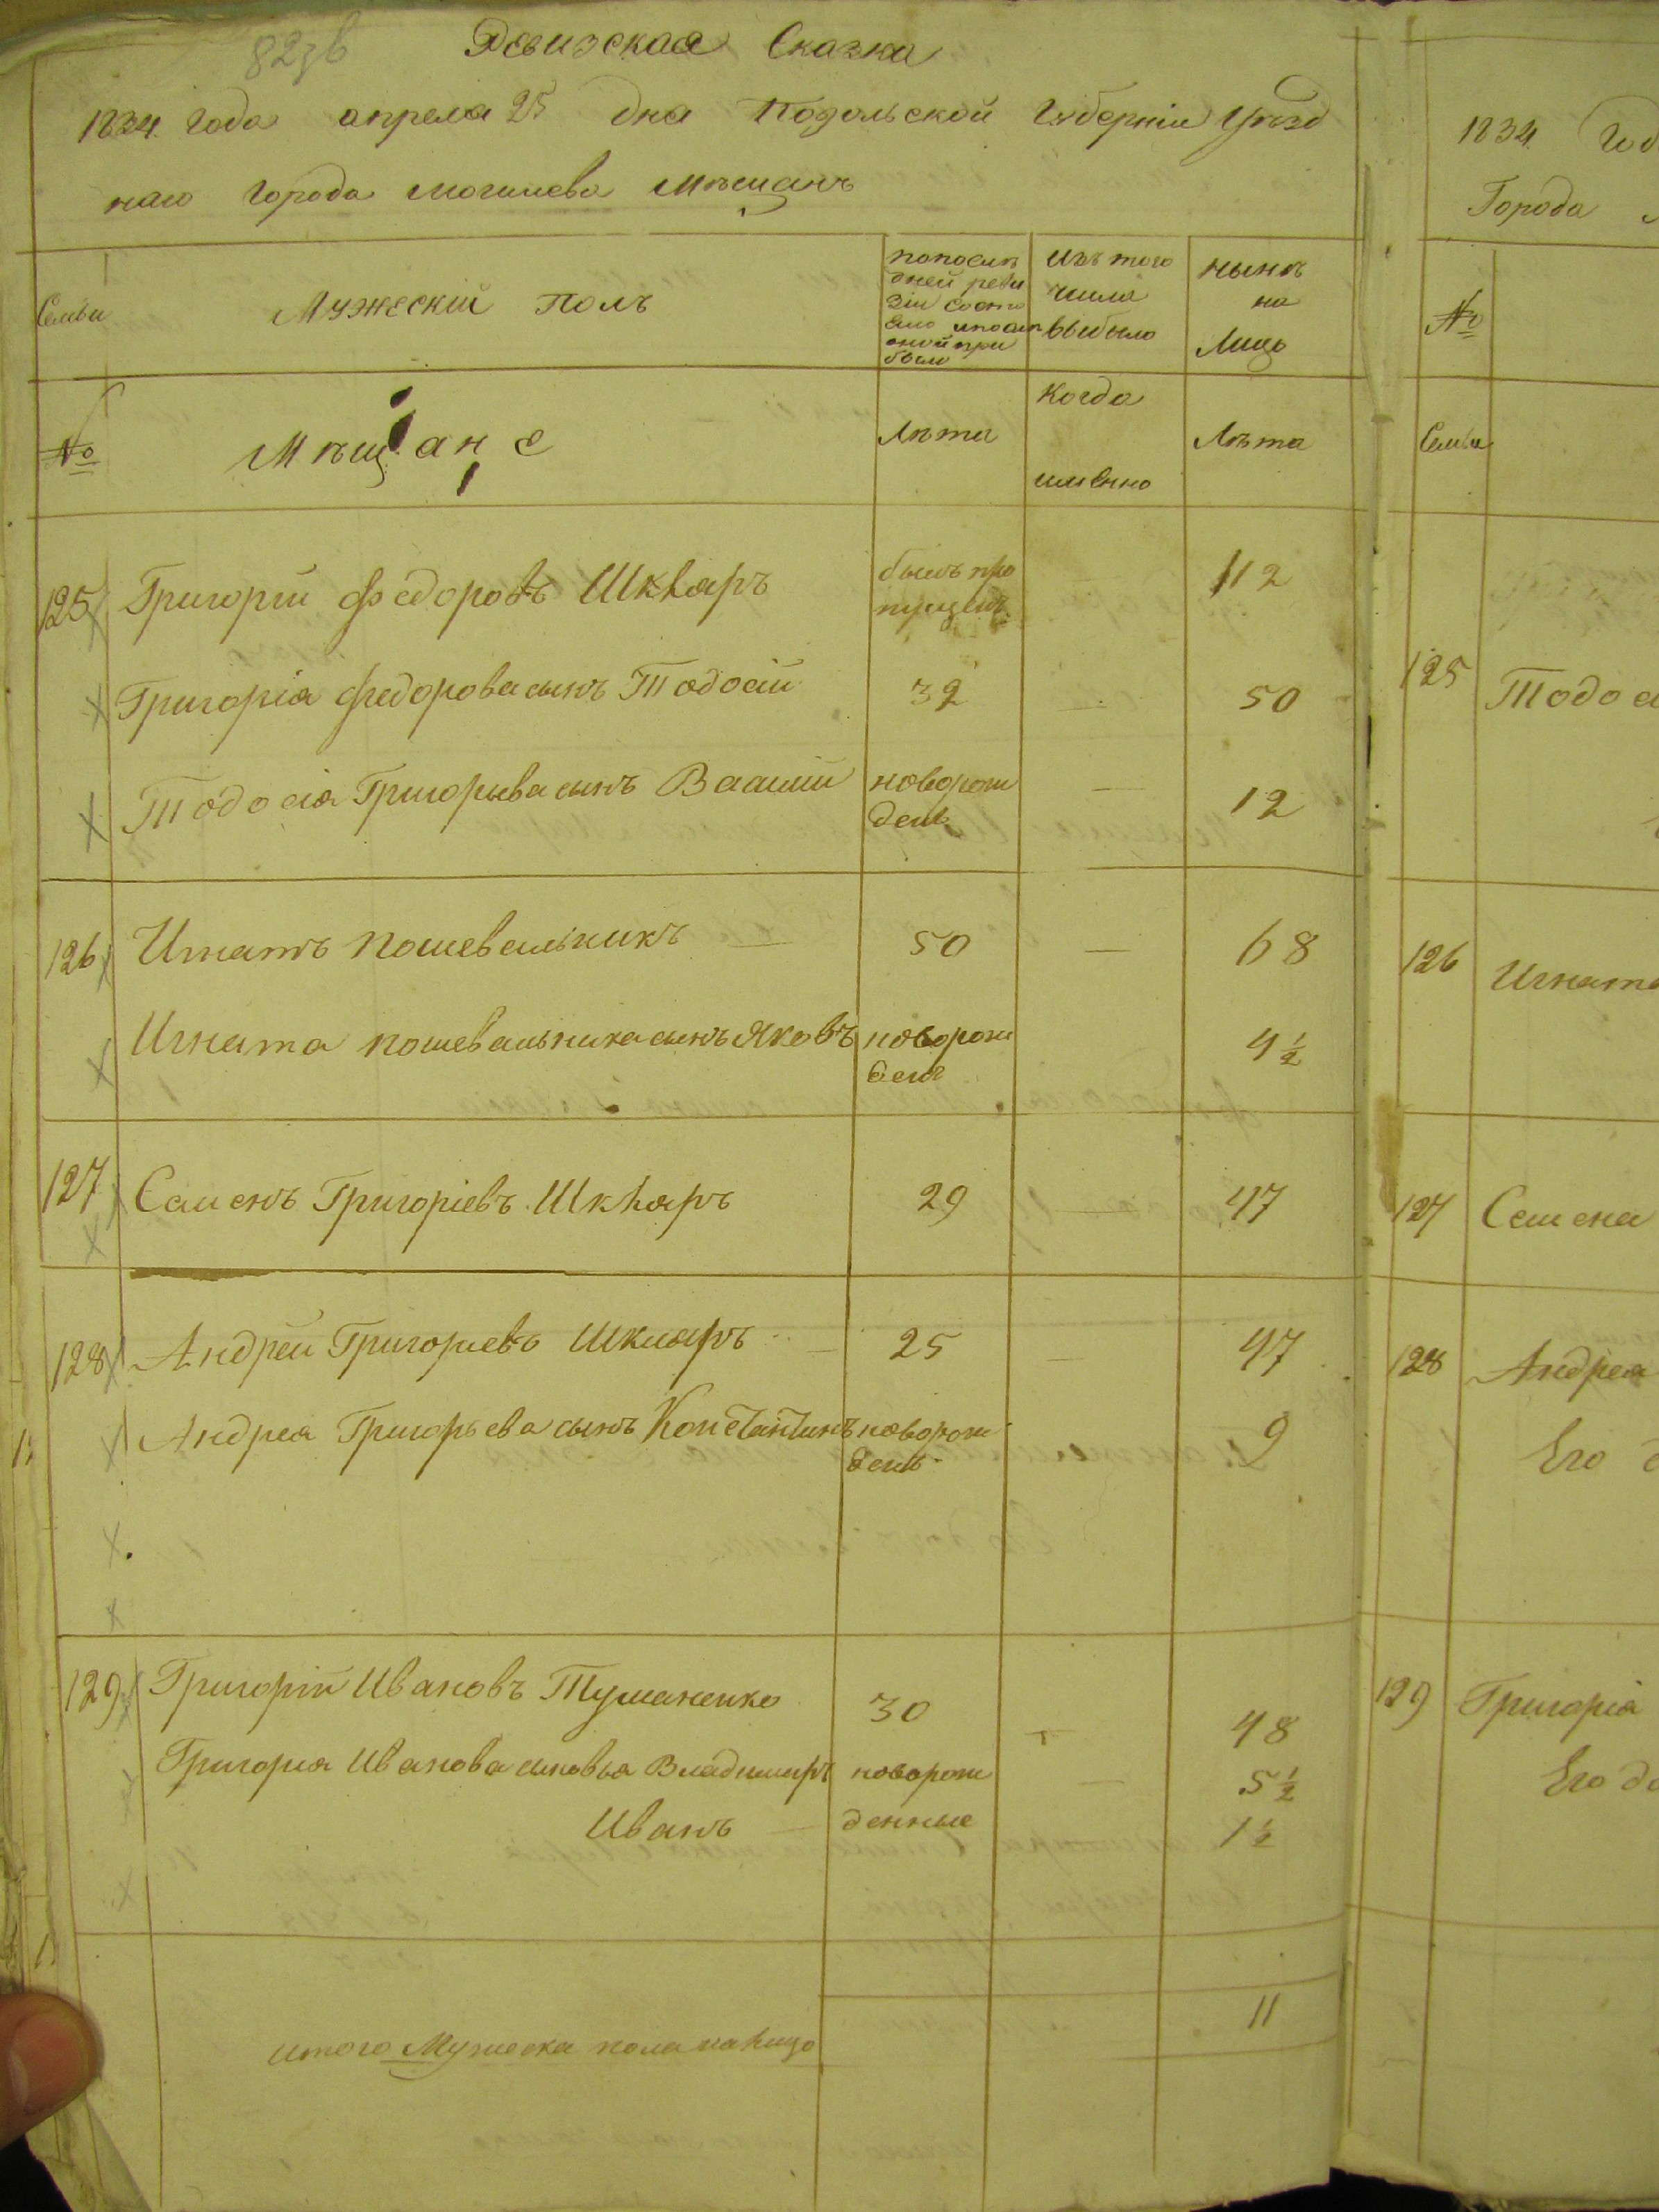 823в
Ревизская Сказка
1834 года апреля 25 дня Подольской Губерніи Уѣзд
наго Города Могилева Мѣщанъ
Семьи
Мужескій Полъ
попослѣ
дней реви
зіи состо
яло ипосл
оной при
было
Изъ того
числа
выбыло
нынѣ
на
лицо
№
Мѣщане
Лѣта
Когда
именно
Лѣта
125 Григорій Федоровъ Шкляръ былъ про
пущенъ 112
Григорія Федорова сынъ Тодосій 32 — 50
Тодосія Григорьева сынъ Василій новорож
денъ — 12
126 Игнатъ Пошевальникъ — 50 — 68
Игната Пошевальника сынъ Яковъ новорож
денъ 4½
127 Семенъ Григоріевъ Шкляръ 29 — 47
128 Андрей Григориевъ Шкляръ — 25 — 47
Андрея Григорьева сынъ Константинъ новорож
денъ 9
129 Григорій Ивановъ Тушаненко 30 — 48
Григория Иванова сыновья Владимиръ новорож — 5½
Иванъ — денные 1½
итого Мужеска пола налицо 11
1834 Год
Города
№
Семьи
125 Тодос
126 Игната
127 Семена
128 Андрея
Его
129 Григорія
Его до